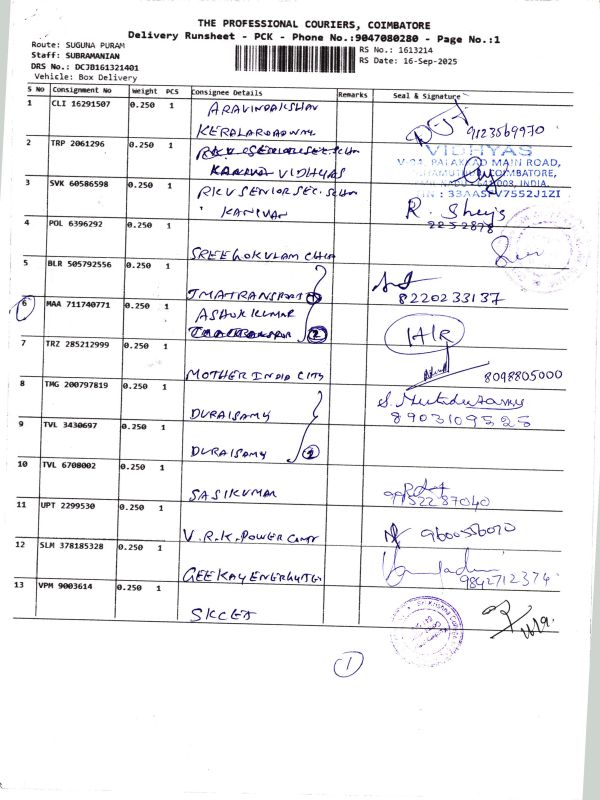 THE PROFESSIONAL COURIERS, COIMBATORE
Delivery Runsheet - PCK - Phone No.:9047080280 - Page No.:1
Route: SUGUNA PURAM
Staff: SUBRAMANIAN
DRS No.: DCJB161321401
Vehicle: Box Delivery
RS No.: 1613214
RS Date: 16-Sep-2025
S No Consignment No Weight PCS Consignee Details Remarks Seal & Signature
1 CLI 16291507 0.250 1 ARAVINDAKSHAN
KERALAROADWAY 9123569970
2 TRP 2061296 0.250 1
KANNNA VIDHYAS
VIDHYAS
MAIN ROAD,
COIMBATORE,
INDIA.
33AASFV7552J1ZI
3 SVK 60586598 0.250 1 RKV SENIOR SEC. SCHN
KANNAN
R.
2252878
4 POL 6396292 0.250 1
SREE GOKULAM CHIT
5 BLR 505792556 0.250 1
JMATRANSPORT
8220233137
6 MAA 711740771 0.250 1 ASHOK KUMAR
2 H/R
7 TRZ 285212999 0.250 1
MOTHER INDIA CITY 8098805000
8 TMG 200797819 0.250 1
DURAISAMY
S. Muthdusamy
8903109525
9 TVL 3430697 0.250 1
DURAISAMY 2
10 TVL 6708002 0.250 1
SASIKUMAR 9952287040
11 UPT 2299530 0.250 1
V.R.K. POWER 9600556070
12 SLM 378185328 0.250 1
GEEKAY 9842712374
13 VPM 9003614 0.250 1
SKCET
Sri Krishna
1